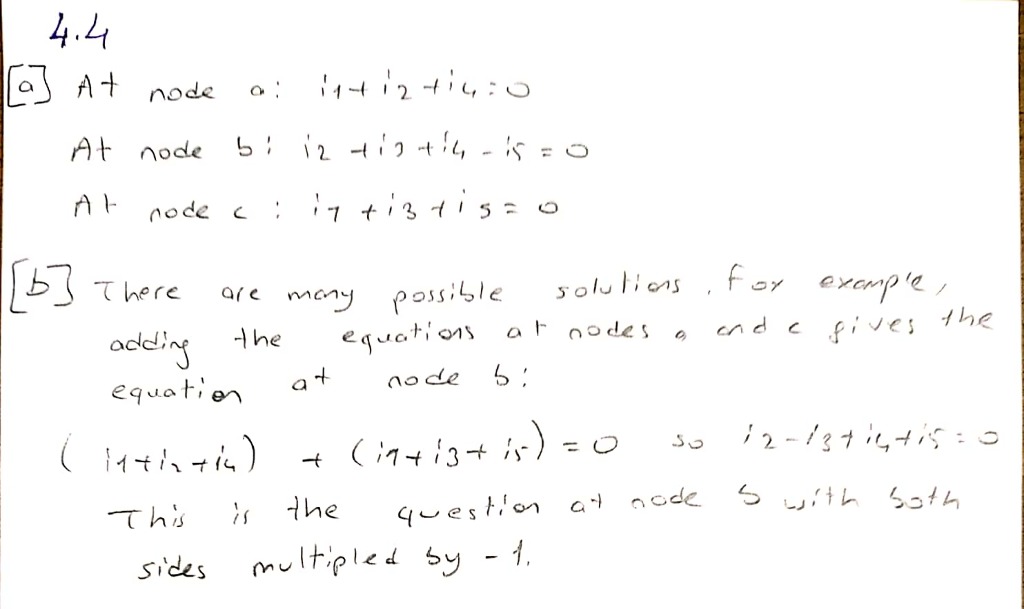 4.4
[a] At node a: i1+i2+i4=0
At node b: i2+i3+i4-i5=0
At node c: i1+i3+i5=0
[b] There are many possible solutions, for example,
adding the equations at nodes a and c gives the
equation at node b:
(i1+i2+i4) + (i1+i3+i5)=0 so i2-i3+i4+i5=0
This is the question at node b with both
sides multipled by -1.